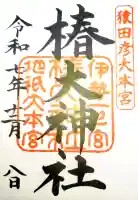 猿田彦大本宮
椿大神社
令和七年十二月八日
伊勢一之宮
地祇大本宮